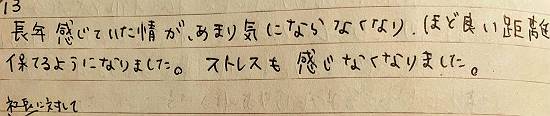 13
長年感じていた情が、あまり気にならなくなり、ほど良い距離
保てるようになりました。ストレスも感じなくなりました。
に対して